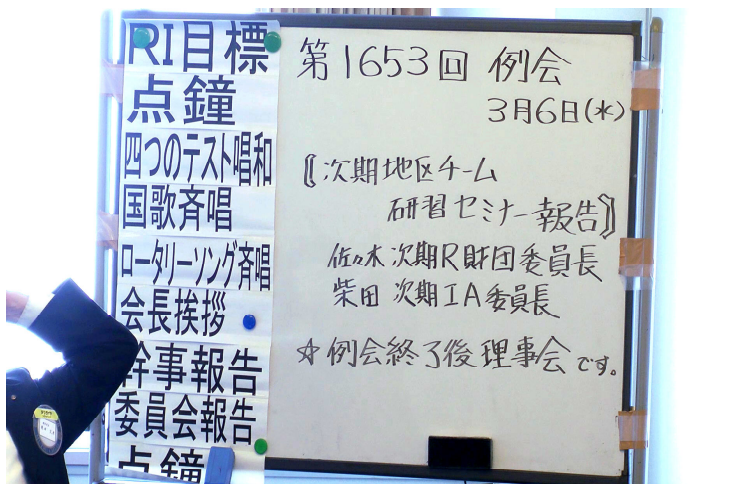 RI目標
点鐘
四つのテスト唱和
国歌斉唱
ロータリーソング斉唱
会長挨拶
幹事報告
委員会報告
点鐘
第1653回 例会
3月6日(水)
〘次期地区チーム
研習セミナー報告〙
佐々木 次期R財団委員長
柴田 次期IA委員長
☆例会終了後理事会です。